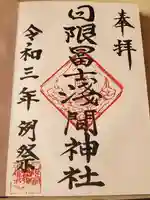 奉拝
日限冨士浅間神社
令和三年例祭